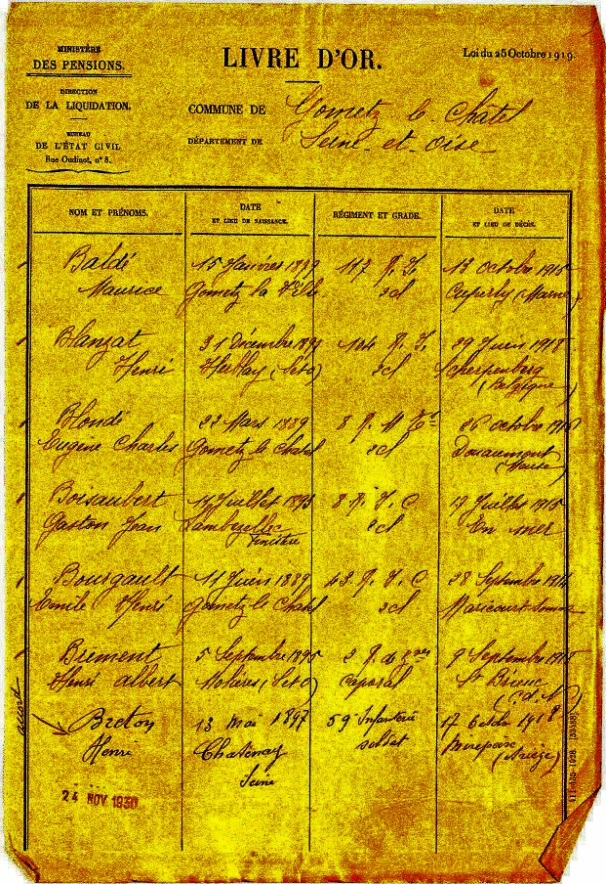 MINISTÈRE
DES PENSIONS.
DIRECTION
DE LA LIQUIDATION.
BUREAU
DE L'ÉTAT CIVIL
Rue Oudinot, n° 8.
LIVRE D'OR.
Loi du 25 Octobre 1919.
COMMUNE DE Gometz le Châtel
DÉPARTEMENT DE Seine-et-Oise
NOM ET PRÉNOMS.
DATE
ET LIEU DE NAISSANCE.
RÉGIMENT ET GRADE.
DATE
ET LIEU DE DÉCÈS.
Baldé
Maurice
15 Janvier
Gometz la Ville
117 R. I.
2cl
13 Octobre 1915
Cuperly (Marne)
Blanzat
Henri
31 Décembre
Herblay
104 R. I.
2cl
29 Juin 1918
Scherpenberg
(Belgique)
Blondé
Eugène Charles
22 Mars 1889
Gometz le Chatel
2cl
26 octobre 1916
Douaumont
(Meuse)
Boisaubert
Gaston Jean
14 Juillet 1893
Lambezellec
Finistère
8 R. I. C
2cl
17 Juillet
En mer
Bourgault
Emile Henri
11 Juin 1889
Gometz le Chatel
43 R. I. C
2cl
28 Septembre 1914
Maricourt Somme
Brement
Henri Albert
5 Septembre 1895
Molières
Caporal
9 Septembre
St Brieuc
(C. d. N)
Breton
Henri
13 Mai 1897
Chatenay
Seine
59e Infanterie
soldat
17 Octobre 1918
(Ariège)
24 NOV 1930